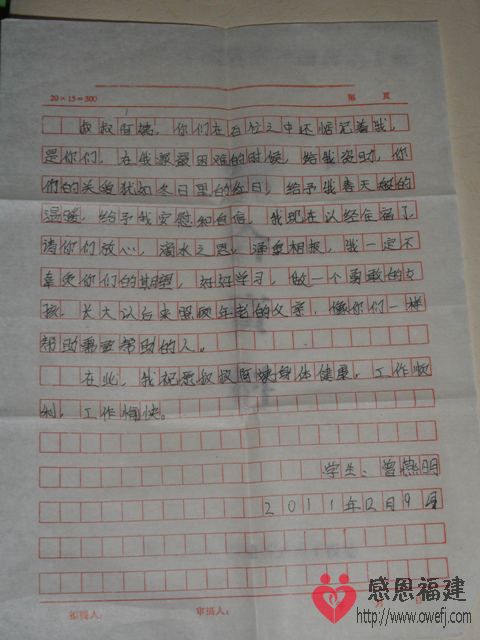 20×15=300
第 页
叔叔阿姨，你们在百忙之中还惦记着我，
是你们，在我家最困难的时候，给我资助，你
们的关爱犹如冬日里的红日，给予我春天般的
温暖，给予我安慰和自信，我现在以经住福了
请你们放心，滴水之恩，涌泉相报，我一定不
辜负你们的期望，好好学习，做一个勇敢的女
孩，长大以后来照顾年老的父亲，像你们一样
帮助需要帮助的人。
在此，我祝愿叔叔阿姨身体健康，工作顺
利，工作愉快。
学生：曾燕明
2011年12月9号
编辑人：
审稿人：
感恩福建
http://www.owefj.com/